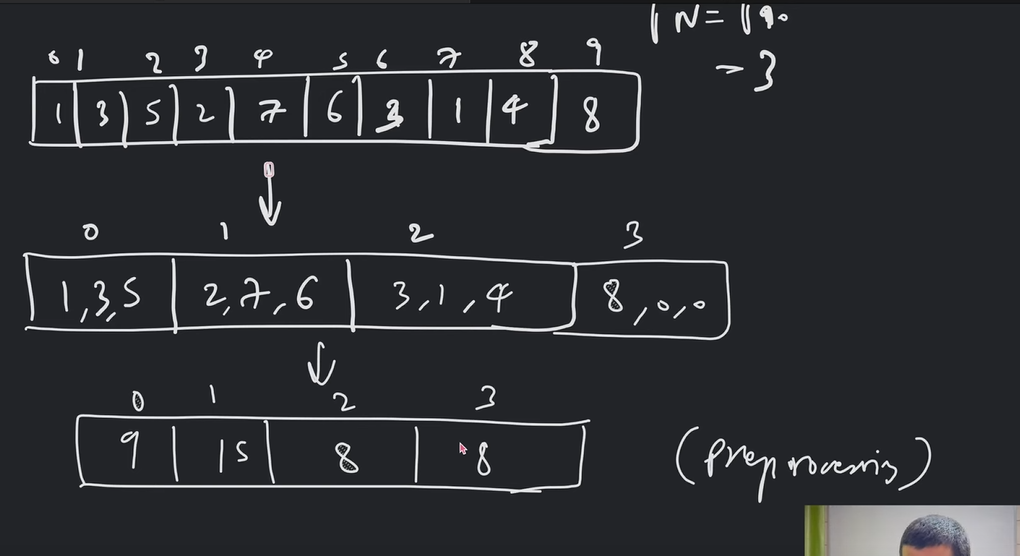 √N = √9.
→ 3
0 1 2 3 4 5 6 7 8 9
1 3 5 2 7 6 3 1 4 8
0 1 2 3
1,3,5 2,7,6 3,1,4 8,0,0
0 1 2 3
9 15 8 8
(preprocessing)